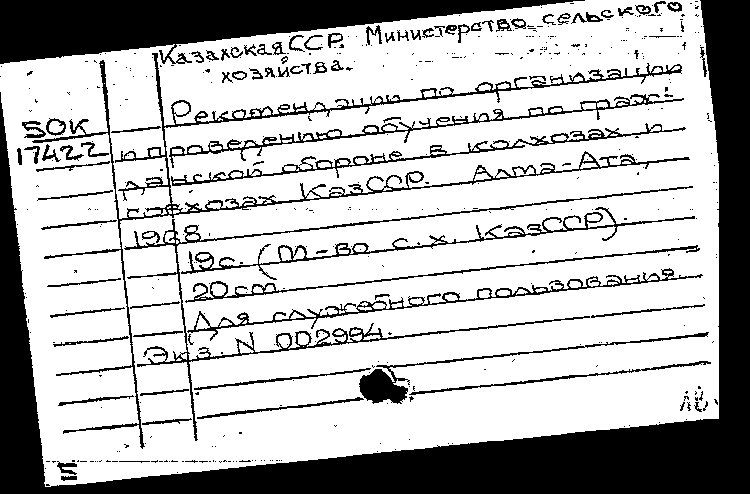 Казахская ССР. Министерство сельского
хозяйства.
Рекомендации по организации
50К
17422
и проведению обучения по граж-
данской обороне в колхозах и
совхозах КазССР. Алма-Ата,
1968.
19с. (М-во с.х. КазССР).
20см.
Для служебного пользования
Экз. N 002984.